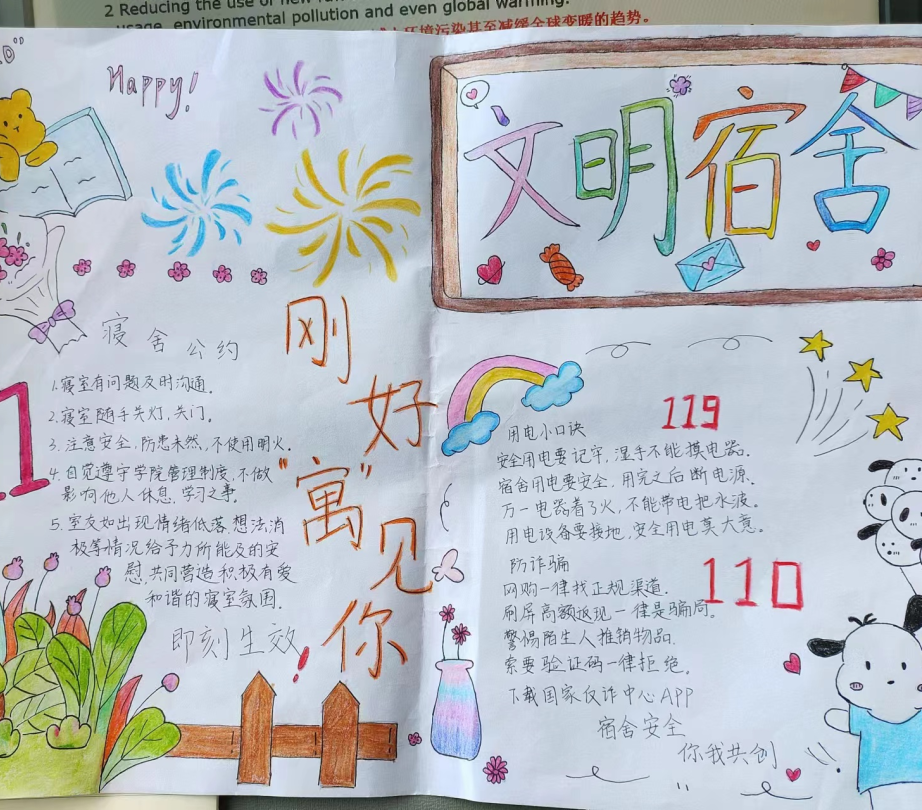 2 Reducing the use of new
usage, environmental pollution and even global warming.
环境污染甚至减缓全球变暖的趋势。
Happy!
文明宿舍
刚好"寓"见你
寝舍公约
1.寝室有问题及时沟通。
2.寝室随手关灯,关门。
3.注意安全,防患未然,不使用明火。
4.自觉遵守学院管理制度,不做
影响他人休息,学习之事。
5.室友如出现情绪低落,想法消
极等情况给予力所能及的安
慰,共同营造积极有爱
和谐的寝室氛围.
即刻生效!
1
119
用电小口诀
安全用电要记牢,湿手不能摸电器.
宿舍用电要安全,用完之后断电源.
万一电器着了火,不能带电把水泼。
用电设备要接地,安全用电莫大意。
110
防诈骗
网购一律找正规渠道.
刷屏高额返现一律是骗局.
警惕陌生人推销物品.
索要验证码一律拒绝。
下载国家反诈中心APP
宿舍安全
你我共创